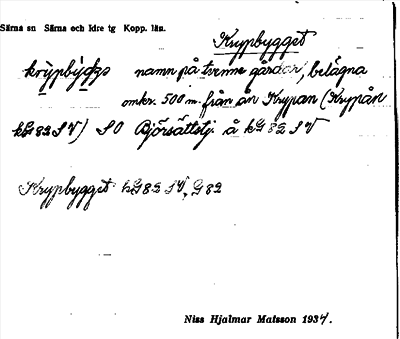 Särna sn Särna och Idre tg Kopp. län.
Krypbygget
krỳpbýdʒs namn på tvenne gårdar, belägna
omkr. 500 m. från ån Krypan (Krypån
kG82SV) SO Björsätteby å kG82SV
Krypbygget kG82SV, G82
Niss Hjalmar Matsson 1934.